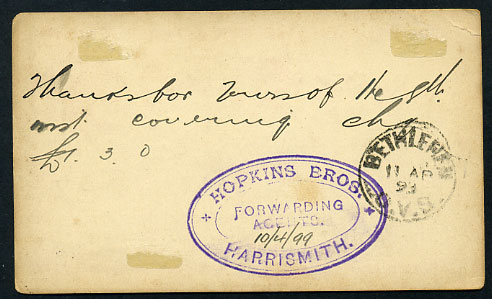 Thanks for yours of the 8th
inst. covering chq
£1. 3. 0
HOPKINS BROS.
FORWARDING
AGENTS.
10/4/99
HARRISMITH.
BETHLEHEM
11 AP
99
O.V.S.